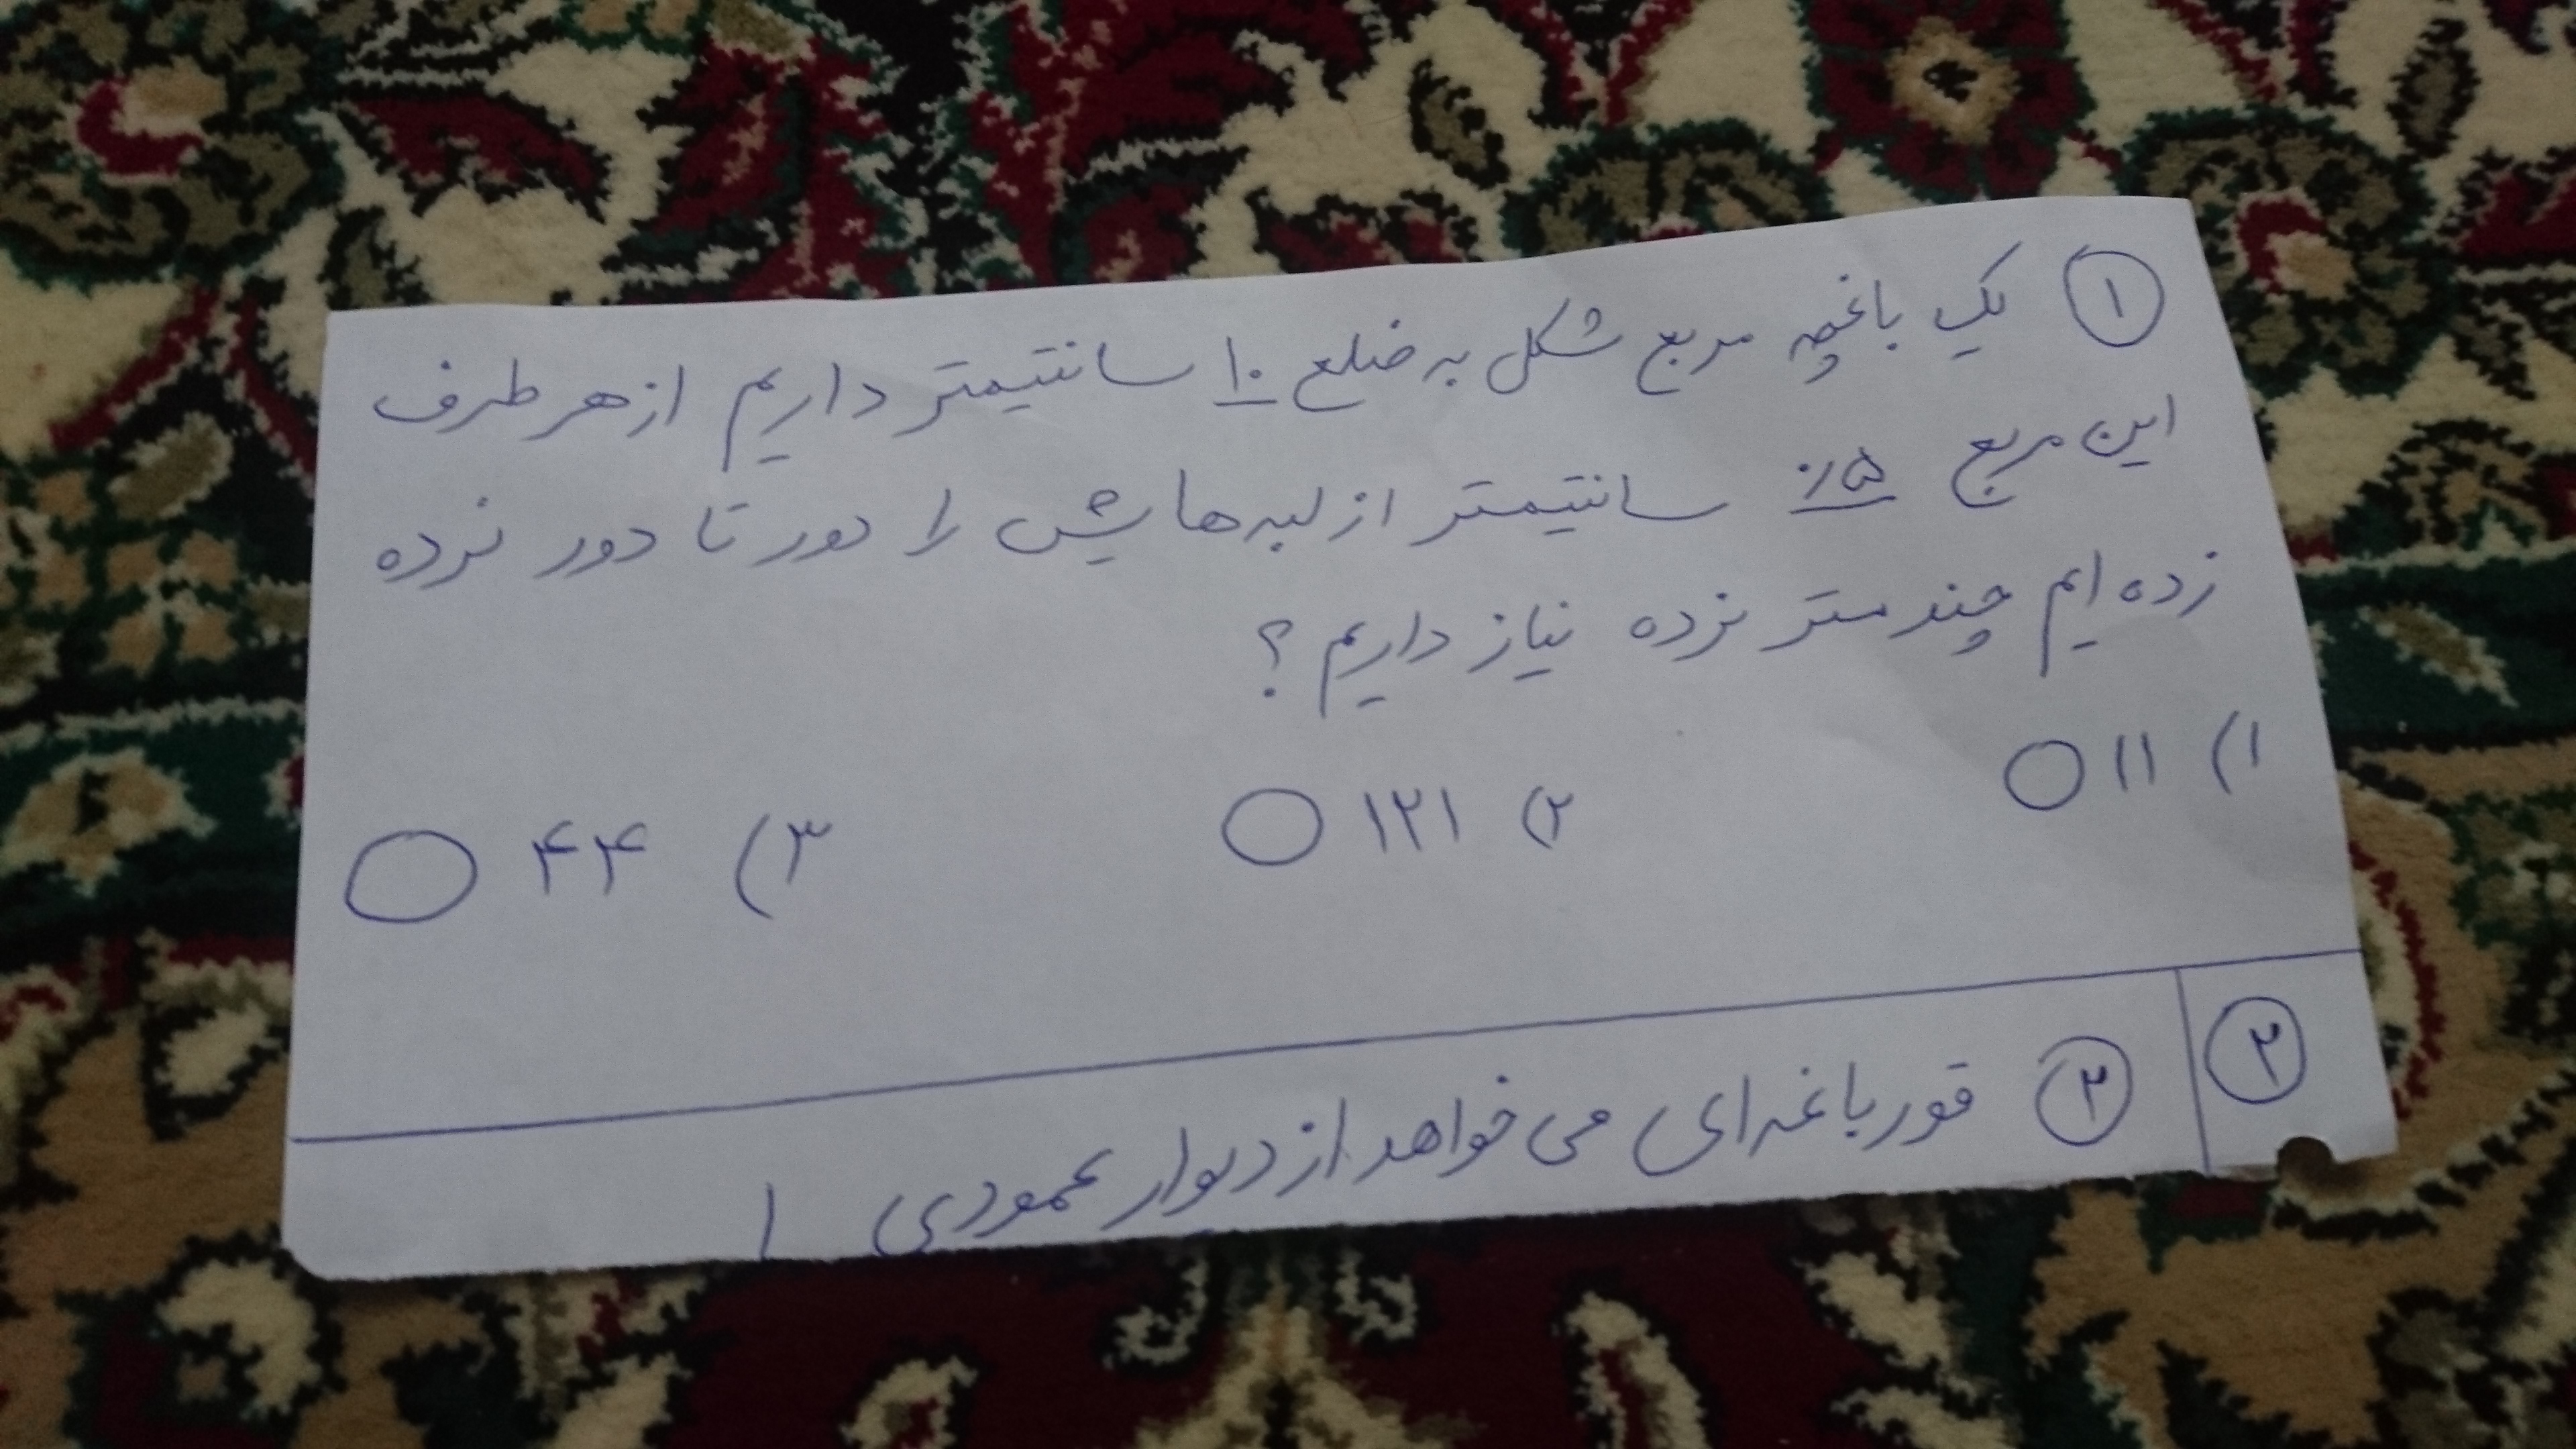 ۱ یک باغچه مربع شکل به ضلع ۱۰ سانتیمتر داریم از هر طرف
این مربع ۰/۵ سانتیمتر از لبه هایش را دور تا دور نرده
زده ایم چند متر نرده نیاز داریم؟
۱) ۱۱
۲) ۱۲۱
۳) ۴۴
۲ ۲ قورباغه ای می خواهد از دیوار عمودی